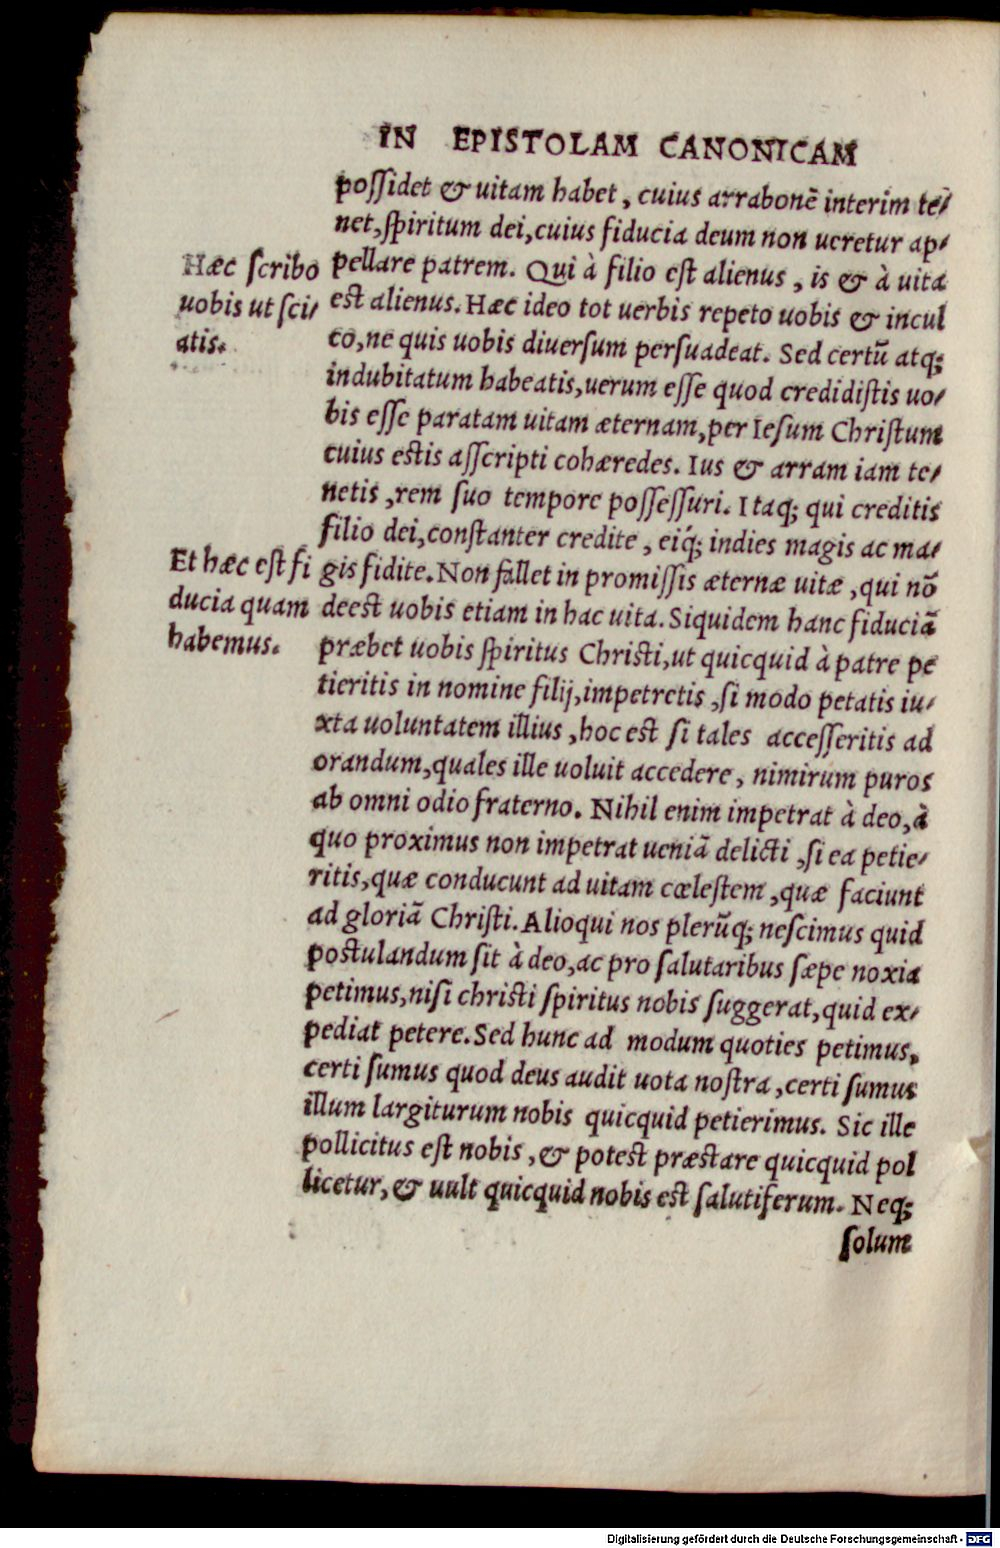 IN EPISTOLAM CANONICAM
poſſidet & uitam habet, cuius arrabonē interim te⸗
net, ſpiritum dei, cuius fiducia deum non ueretur ap⸗
Hæc ſcribo
uobis ut ſci⸗
atis.
pellare patrem. Qui à filio eſt alienus, is & à uita
eſt alienus. Hæc ideo tot uerbis repeto uobis & incul
co, ne quis uobis diuerſum perſuadeat. Sed certū atq;
indubitatum habeatis, uerum eſſe quod credidiſtis uo⸗
bis eſſe paratam uitam æternam, per Ieſum Chriſtum
cuius eſtis aſſcripti cohæredes. Ius & arram iam te⸗
netis, rem ſuo tempore poſſeſſuri. Itaq; qui creditis
filio dei, conſtanter credite, eiq́; indies magis ac ma⸗
Et hæc eſt fi
ducia quam
habemus.
gis fidite. Non fallet in promiſſis æternæ uitæ, qui nō
deeſt uobis etiam in hac uita. Siquidem hanc fiduciā
præbet uobis ſpiritus Chriſti, ut quicquid à patre pe
tieritis in nomine filij, impetretis, ſi modo petatis iu⸗
xta uoluntatem illius, hoc eſt ſi tales acceſſeritis ad
orandum, quales ille uoluit accedere, nimirum puros
ab omni odio fraterno. Nihil enim impetrat à deo, à
quo proximus non impetrat ueniā delicti, ſi ea petie⸗
ritis, quæ conducunt ad uitam cœleſtem, quæ faciunt
ad gloriā Chriſti. Alioqui nos plerūq; neſcimus quid
poſtulandum ſit à deo, ac pro ſalutaribus ſæpe noxia
petimus, niſi chriſti ſpiritus nobis ſuggerat, quid ex⸗
pediat petere. Sed hunc ad modum quoties petimus,
certi ſumus quod deus audit uota noſtra, certi ſumus
illum largiturum nobis quicquid petierimus. Sic ille
pollicitus eſt nobis, & poteſt præſtare quicquid pol
licetur, & uult quicquid nobis eſt ſalutiferum. Neq;
ſolum
Digitalisierung gefördert durch die Deutsche Forschungsgemeinschaft - DFG